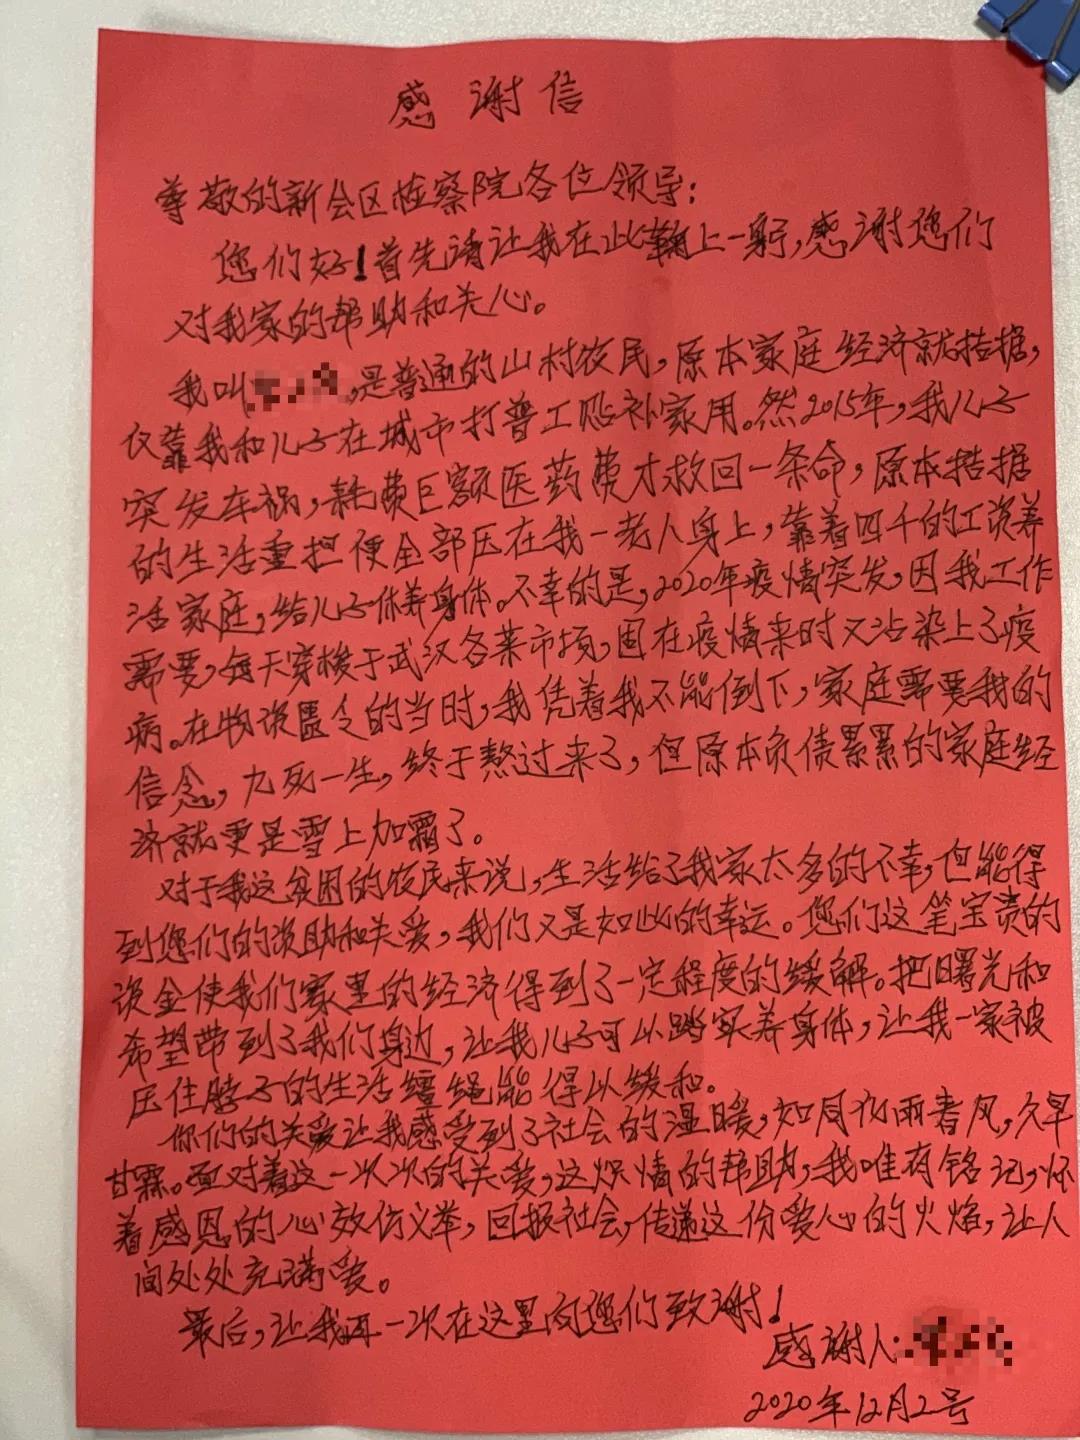 感谢信
尊敬的新会区检察院各位领导:
您们好!首先请让我在此鞠上一躬,感谢您们
对我家的帮助和关心。
我叫,是普通的山村农民,原本家庭经济就拮据,
仅靠我和儿子在城市打普工贴补家用。然2015年,我儿子
突发车祸,耗费巨额医药费才救回一条命,原本拮据
的生活重担便全部压在我一老人身上,靠着四千的工资养
活家庭,给儿子休养身体。不幸的是,2020年疫情突发,因我工作
需要,每天穿梭于武汉各菜市场,困在疫情来时又沾染上了疫
病。在物资匮乏的当时,我凭着我不能倒下,家庭需要我的
信念,九死一生,终于熬过来了,但原本负债累累的家庭经
济就更是雪上加霜了。
对于我这贫困的农民来说,生活给了我家太多的不幸,但能得
到您们的资助和关爱,我们又是如此的幸运。您们这笔宝贵的
资金使我们家里的经济得到了一定程度的缓解。把曙光和
希望带到了我们身边,让我儿子可以踏实养身体,让我一家被
压住脖子的生活缰绳能得以缓和。
你们的关爱让我感受到了社会的温暖,如同化雨春风,久旱
甘霖。面对着这一次次的关爱,这炽情的帮助,我唯有铭记,怀
着感恩的心效仿义举,回报社会,传递这份爱心的火焰,让人
间处处充满爱。
最后,让我再一次在这里向您们致谢!
感谢人:
2020年12月2号